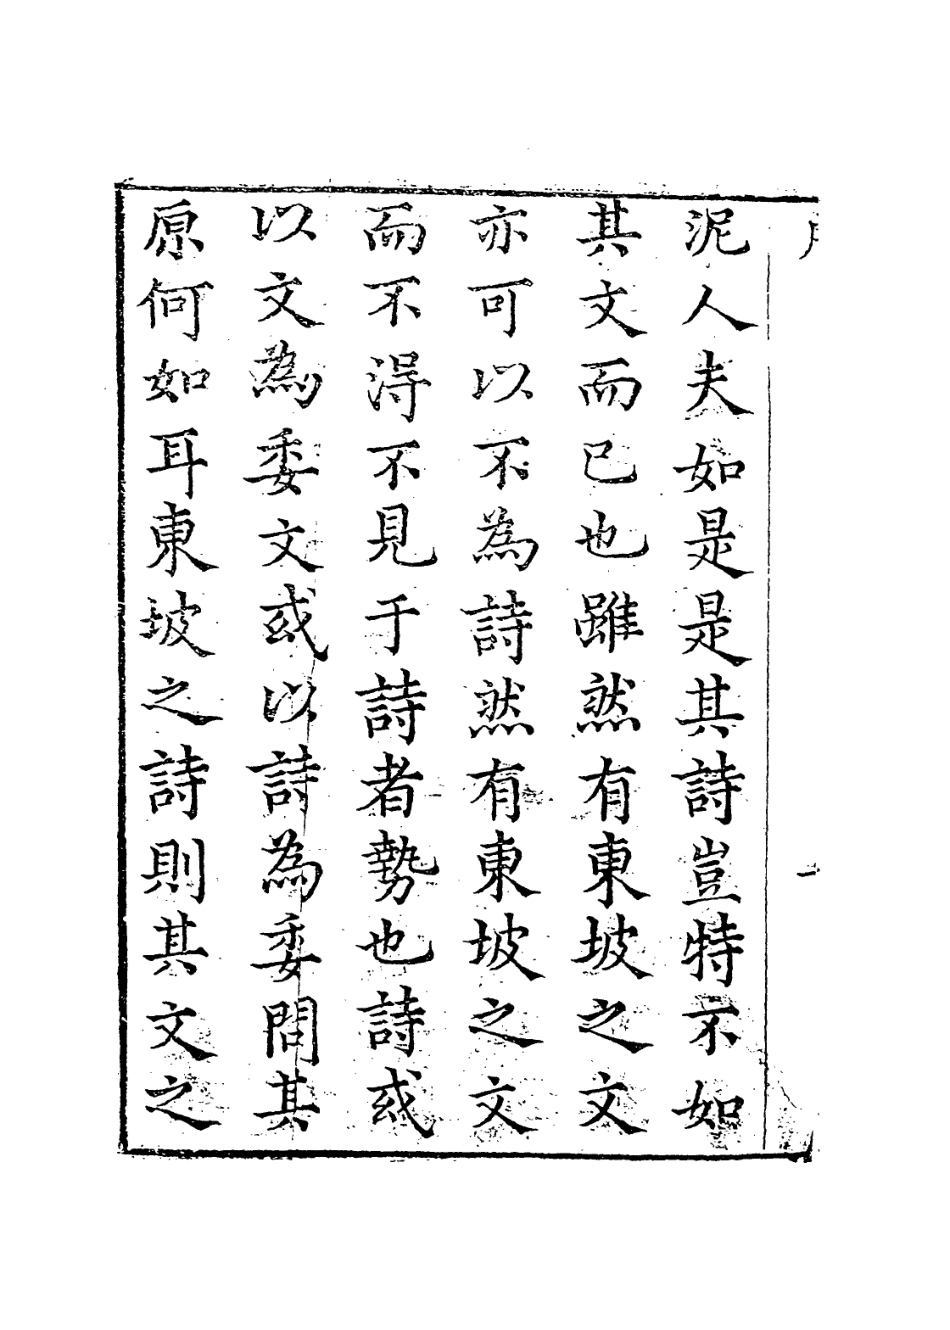 泥人夫如是是其詩豈特不如
其文而已也雖然有東坡之文
亦可以不為詩然有東坡之文
而不得不見于詩者勢也詩或
以文為委文或以詩為委問其
原何如耳東坡之詩則其文之